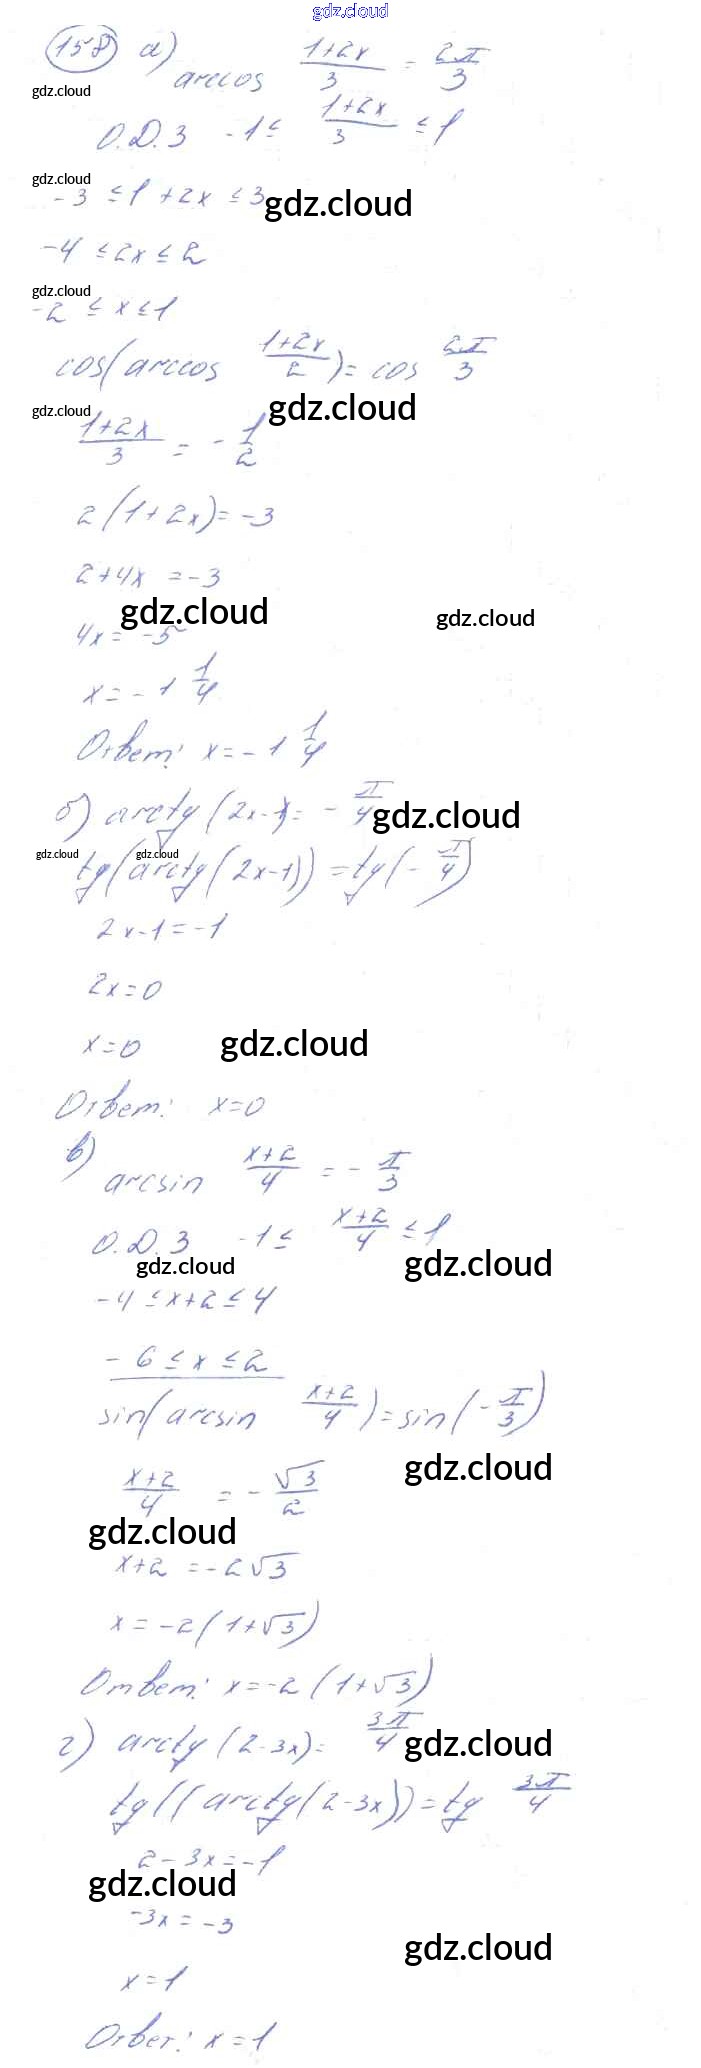 gdz.cloud
158 а) arccos (1+2x)/3 = 2π/3
gdz.cloud
О.Д.З -1 ≤ (1+2x)/3 ≤ 1
gdz.cloud
-3 ≤ 1 + 2x ≤ 3
gdz.cloud
-4 ≤ 2x ≤ 2
gdz.cloud
-2 ≤ x ≤ 1
cos(arccos (1+2x)/2) = cos 2π/3
gdz.cloud
gdz.cloud
(1+2x)/3 = - 1/2
2(1+2x) = -3
2+4x = -3
gdz.cloud
gdz.cloud
4x = -5
x = -1 1/4
Ответ: x = -1 1/4
б) arctg(2x-1) = - π/4
gdz.cloud
gdz.cloud
gdz.cloud
tg(arctg(2x-1)) = tg(- π/4)
2x-1 = -1
2x = 0
x = 0
gdz.cloud
Ответ: x = 0
в) arcsin (x+2)/4 = - π/3
О.Д.З -1 ≤ (x+2)/4 ≤ 1
gdz.cloud
gdz.cloud
-4 ≤ x+2 ≤ 4
-6 ≤ x ≤ 2
sin(arcsin (x+2)/4) = sin(- π/3)
gdz.cloud
(x+2)/4 = - √3/2
gdz.cloud
x+2 = -2√3
x = -2(1+√3)
Ответ: x = -2(1+√3)
г) arctg(2-3x) = 3π/4
gdz.cloud
tg((arctg(2-3x)) = tg 3π/4
2-3x = -1
gdz.cloud
-3x = -3
gdz.cloud
x = 1
Ответ: x = 1